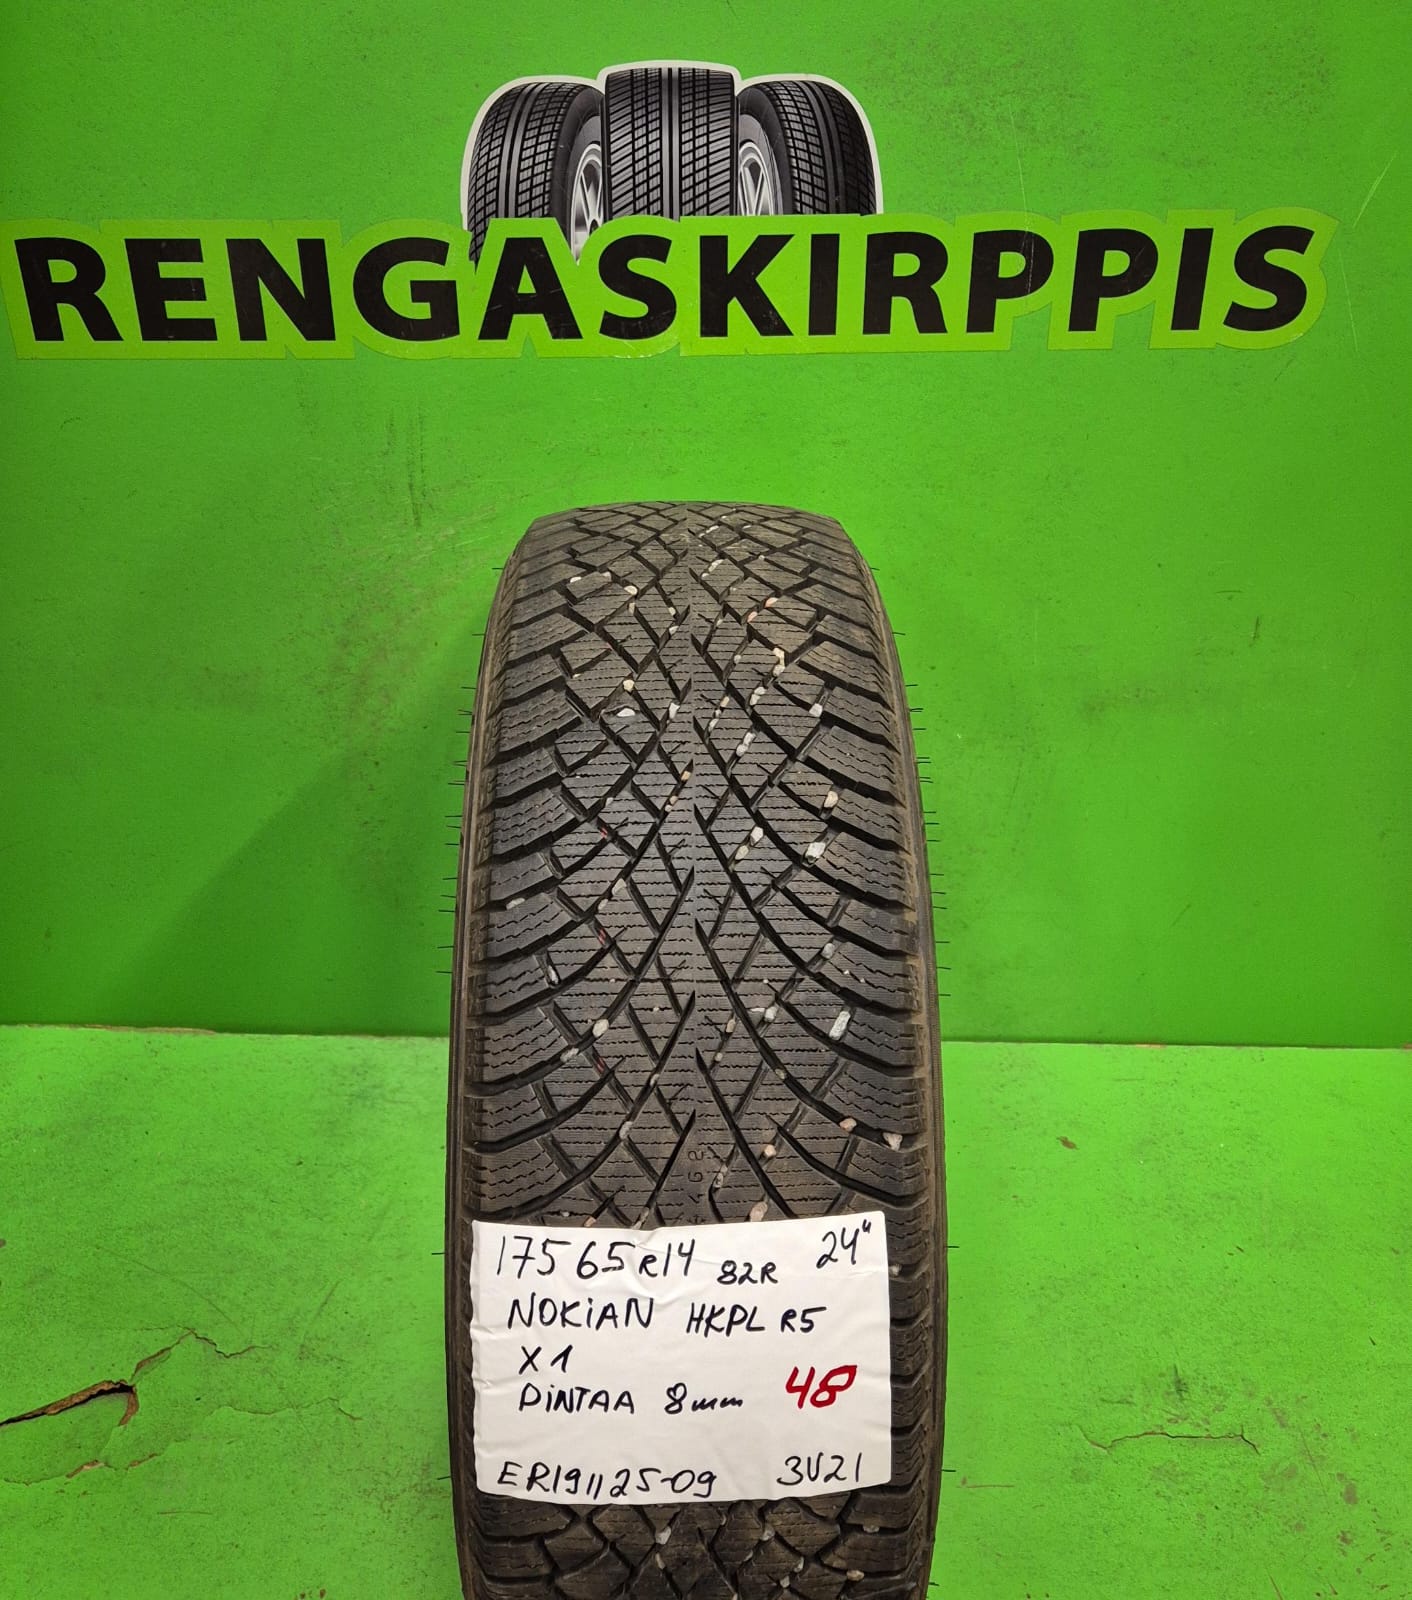 RENGASKIRPPIS
175 65 R14 82R 24"
NOKiAN HKPL R5
X1
PiNTAA 8mm 48
ER191125-09 3V21